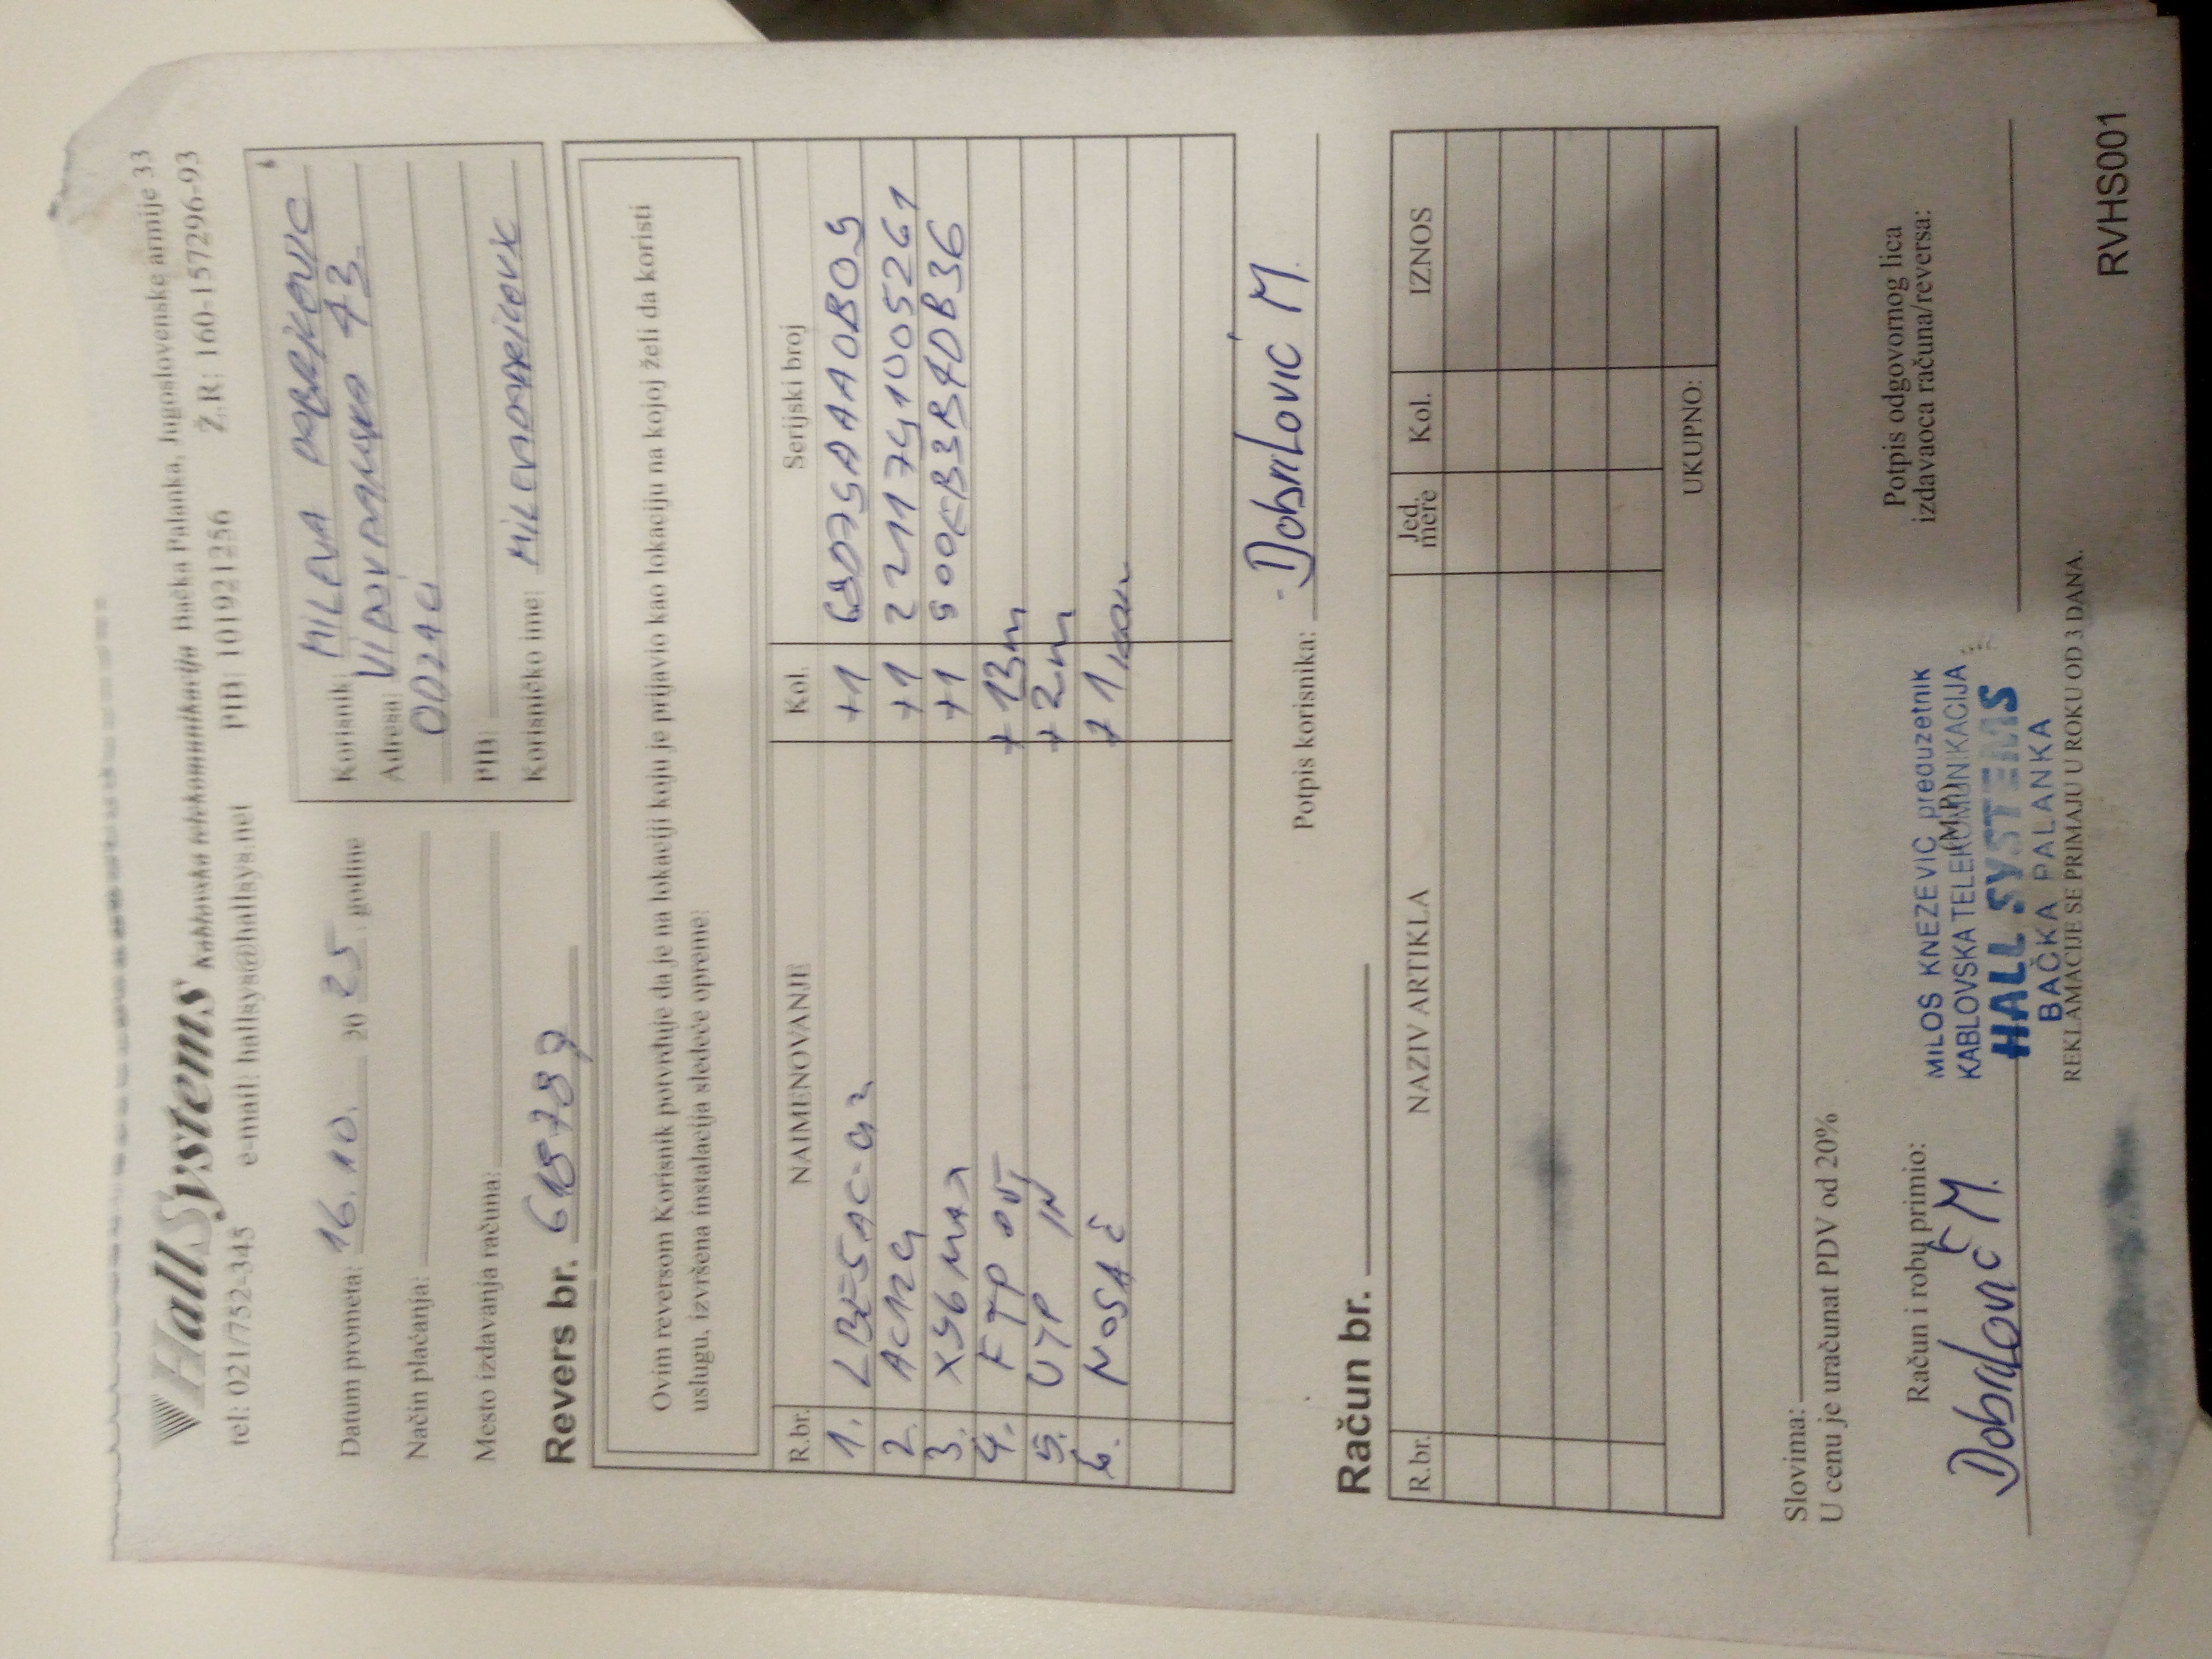 HallSystems Kablovska telekomunikacija Bačka Palanka, Jugoslovenske armije 33
tel: 021/752-345 e-mail: hallsys@hallsys.net PIB: 101921256 Ž.R: 160-157296-93
Datum prometa: 16.10. 2025. godine
Način plaćanja:
Mesto izdavanja računa:
Korisnik: MILEVA
Adresa: 43.
ODZACI
PIB:
Korisničko ime:
Revers br. 618789
Ovim reversom Korisnik potvrđuje da je na lokaciji koju je prijavio kao lokaciju na kojoj želi da koristi
uslugu, izvršena instalacija sledeće opreme:
R.br. NAIMENOVANJE Kol. Serijski broj
1. LBE-5AC-G2 +1 68D79AAA0B09
2. +1 2211791005261
3. +1
4. FTP OUT +13m
5. UTP IN +2m
6. NOSAČ +1 kom
Potpis korisnika: Dobrilović M.
Račun br.
R.br. NAZIV ARTIKLA Jed. mere Kol. IZNOS
UKUPNO:
Slovima:
U cenu je uračunat PDV od 20%
Račun i robu primio:
Dobrilović M.
(M.P.)
MILOS KNEZEVIC preduzetnik
KABLOVSKA TELEKOMUNIKACIJA
HALL SYSTEMS
BAČKA PALANKA
Potpis odgovornog lica
izdavaoca računa/reversa:
REKLAMACIJE SE PRIMAJU U ROKU OD 3 DANA.
RVHS001